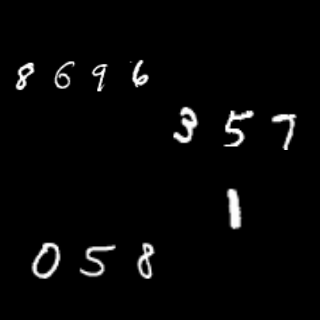 8696
357
1
058